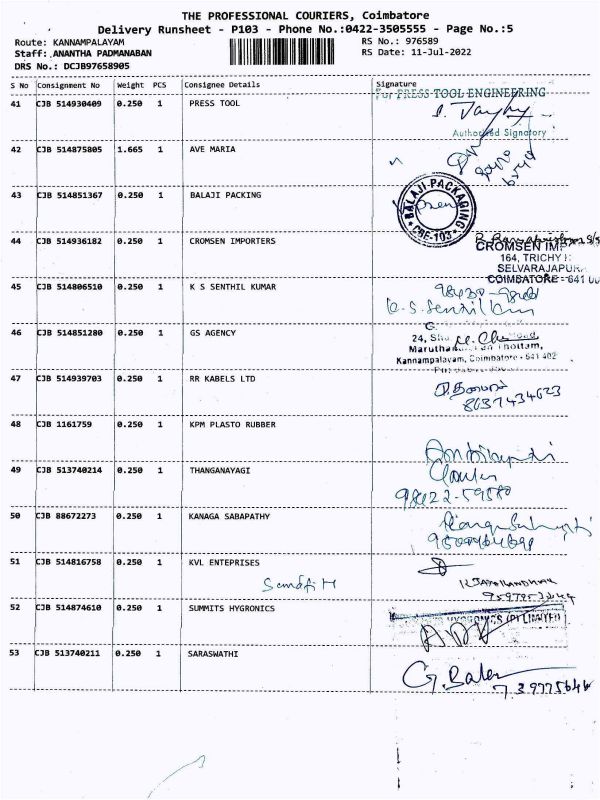 THE PROFESSIONAL COURIERS, Coimbatore
Delivery Runsheet - P103 - Phone No.:0422-3505555 - Page No.:5
Route: KANNAMPALAYAM RS No.: 976589
Staff: ANANTHA PADMANABAN RS Date: 11-Jul-2022
DRS No.: DCJB97658905
S No Consignment No Weight PCS Consignee Details Signature
For PRESS TOOL ENGINEERING
41 CJB 514930409 0.250 1 PRESS TOOL
Authorised Signatory
42 CJB 514875805 1.665 1 AVE MARIA
43 CJB 514851367 0.250 1 BALAJI PACKING
BALAJI PACKAGING
CBE-103
44 CJB 514936182 0.250 1 CROMSEN IMPORTERS
CROMSEN IMP
164, TRICHY
SELVARAJAPURA
COIMBATORE - 641 00
45 CJB 514806510 0.250 1 K S SENTHIL KUMAR
K.S. Senthil Kum
46 CJB 514851280 0.250 1 GS AGENCY
G.
24,
Thottam,
Kannampalayam, Coimbatore - 641 402
47 CJB 514939703 0.250 1 RR KABELS LTD
8637434623
48 CJB 1161759 0.250 1 KPM PLASTO RUBBER
49 CJB 513740214 0.250 1 THANGANAYAGI
98422-59580
50 CJB 88672273 0.250 1 KANAGA SABAPATHY
51 CJB 514816758 0.250 1 KVL ENTEPRISES
52 CJB 514874610 0.250 1 SUMMITS HYGRONICS
HYGRONICS (P) LIMITED
53 CJB 513740211 0.250 1 SARASWATHI
G. Balan